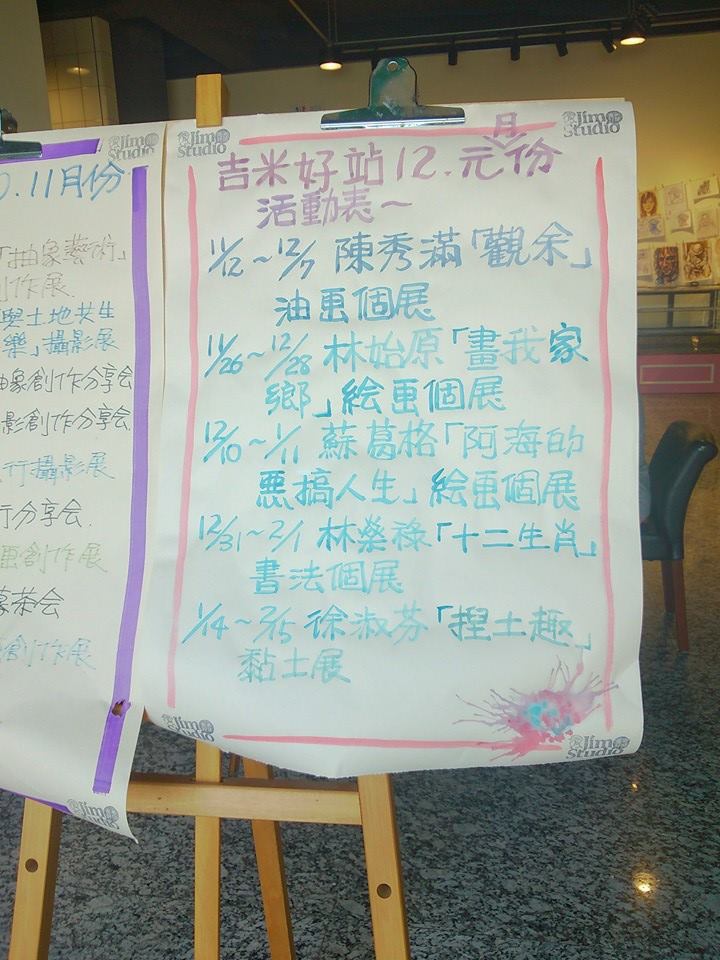 Jim Studio
Jim Studio
Jim Studio
吉米好站12.元月份
活動表~
11/12~12/7 陳秀滿「觀余」
油画個展
11/26~12/28 林始原「畫我家
鄉」絵画個展
12/10~1/11 蘇葛格「阿海的
惡搞人生」絵画個展
12/31~2/1 林榮祿「十二生肖」
書法個展
1/14~2/15 徐淑芬「捏土趣」
黏土展
Jim Studio
Jim Studio
.11月份
「抽象藝術」
創作展
與土地共生
樂」攝影展
抽象創作分享会
影創作分享会
行攝影展
行分享会.
画創作展
茶会
創作展
Jim Studio